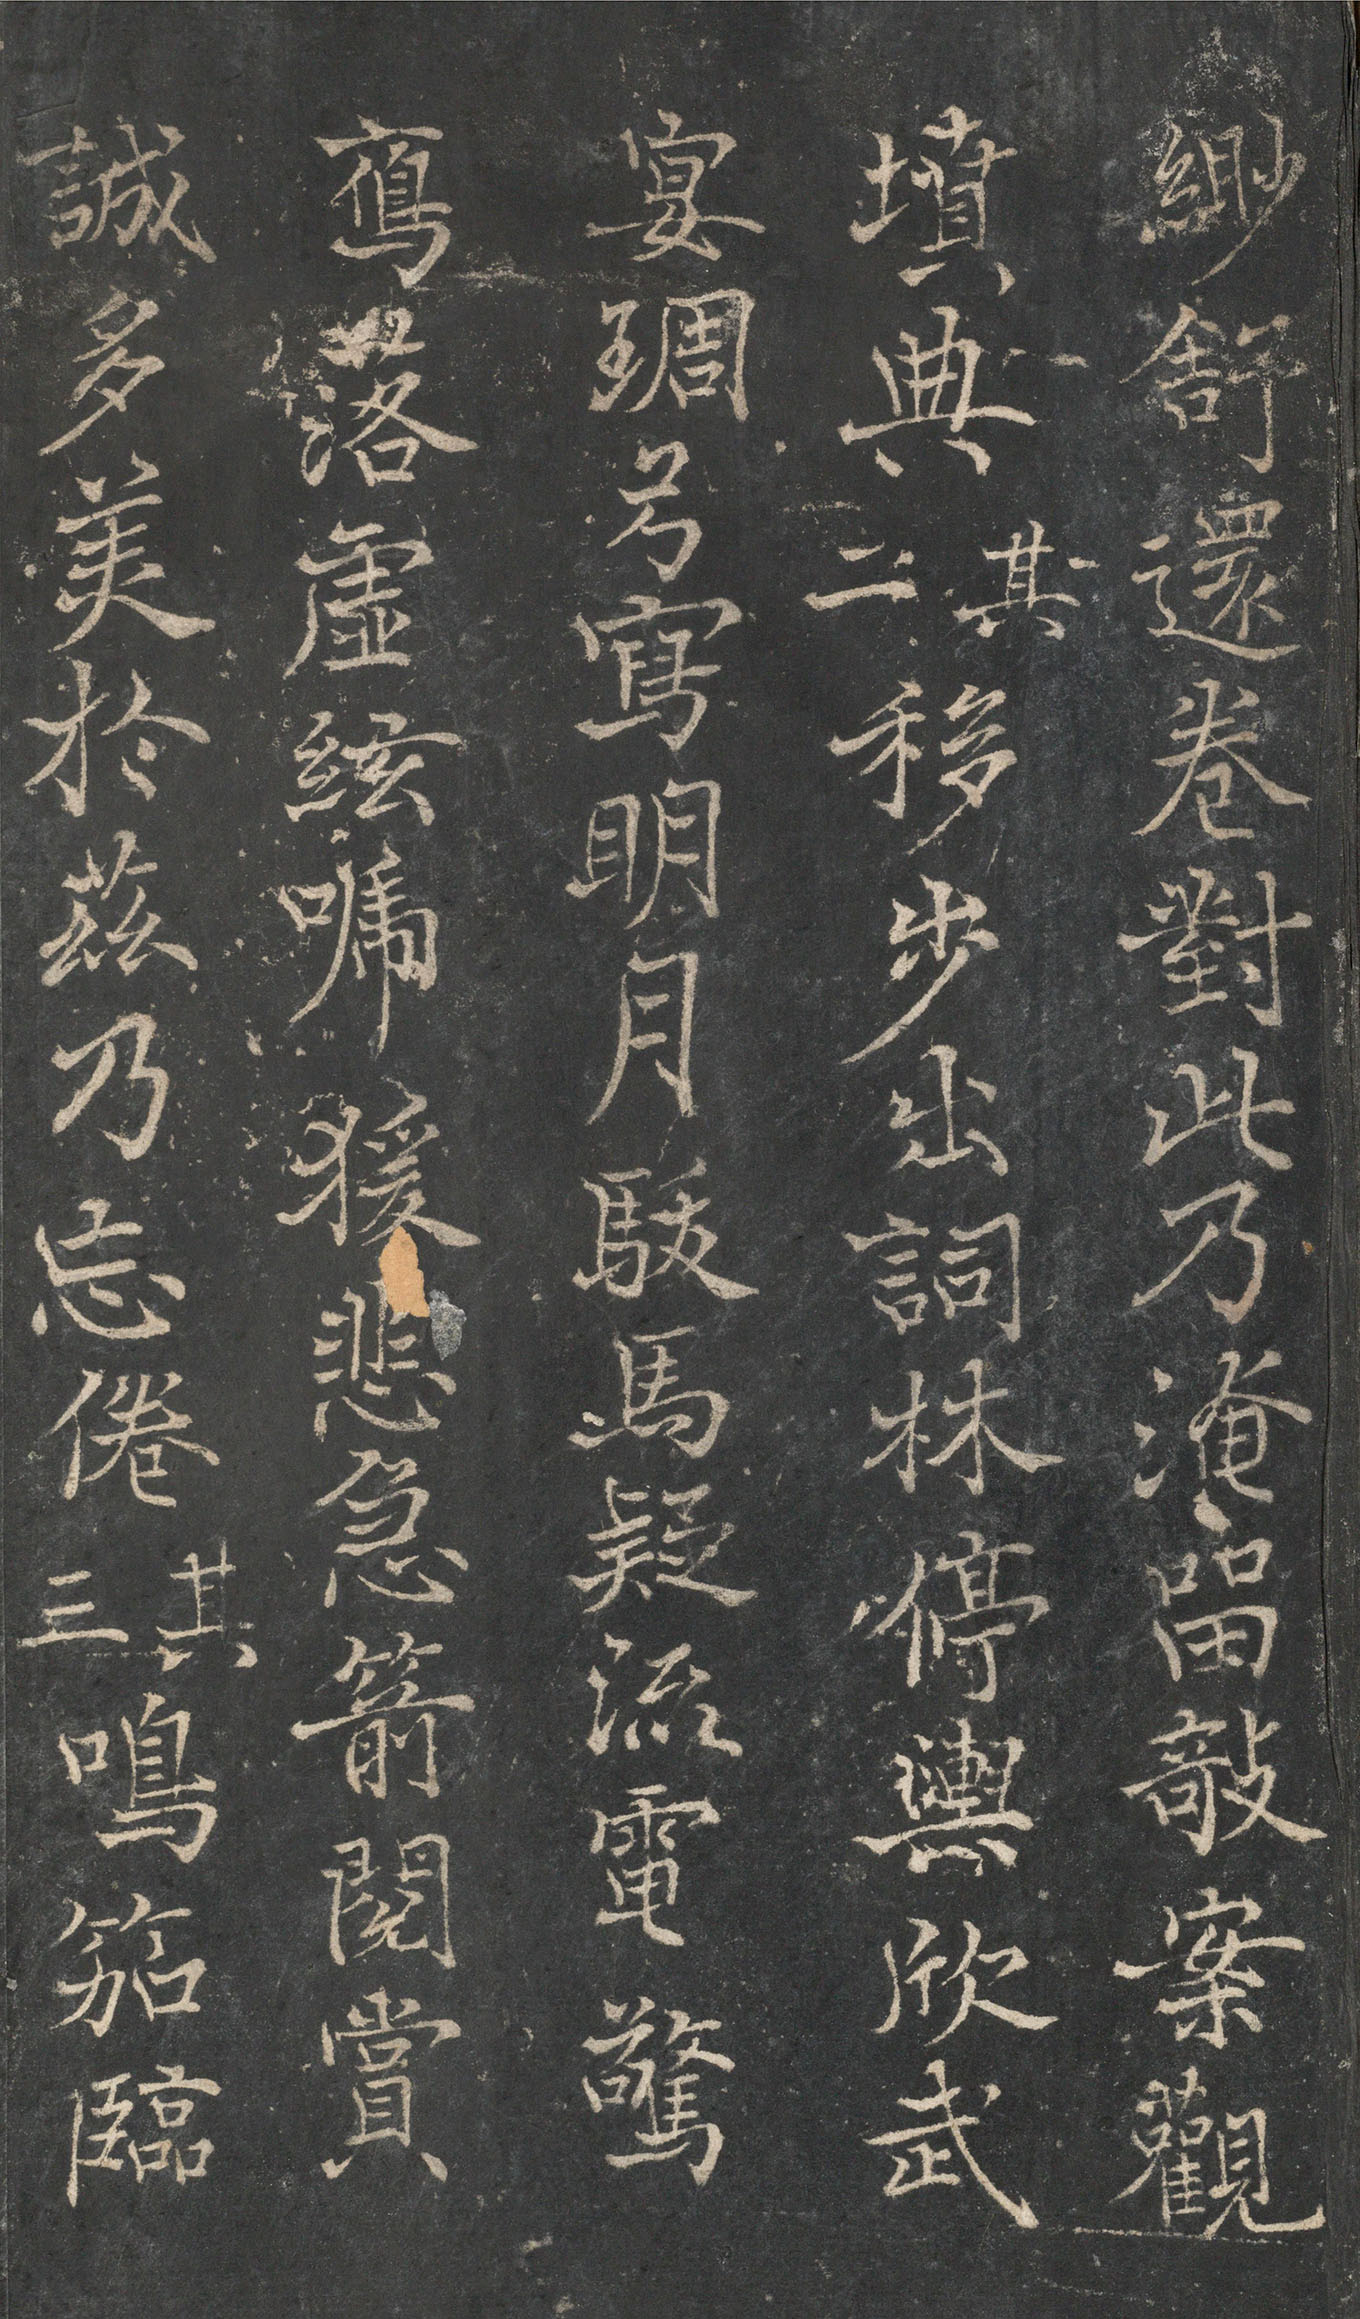 緲舒還卷對此乃淹留敧案觀
墳典其二移步出詞林停輿欣武
宴琱弓寫明月駿馬疑流電驚
鴈落虛絃啼猨悲急箭閱賞
誠多美於茲乃忘倦其三鳴笳臨